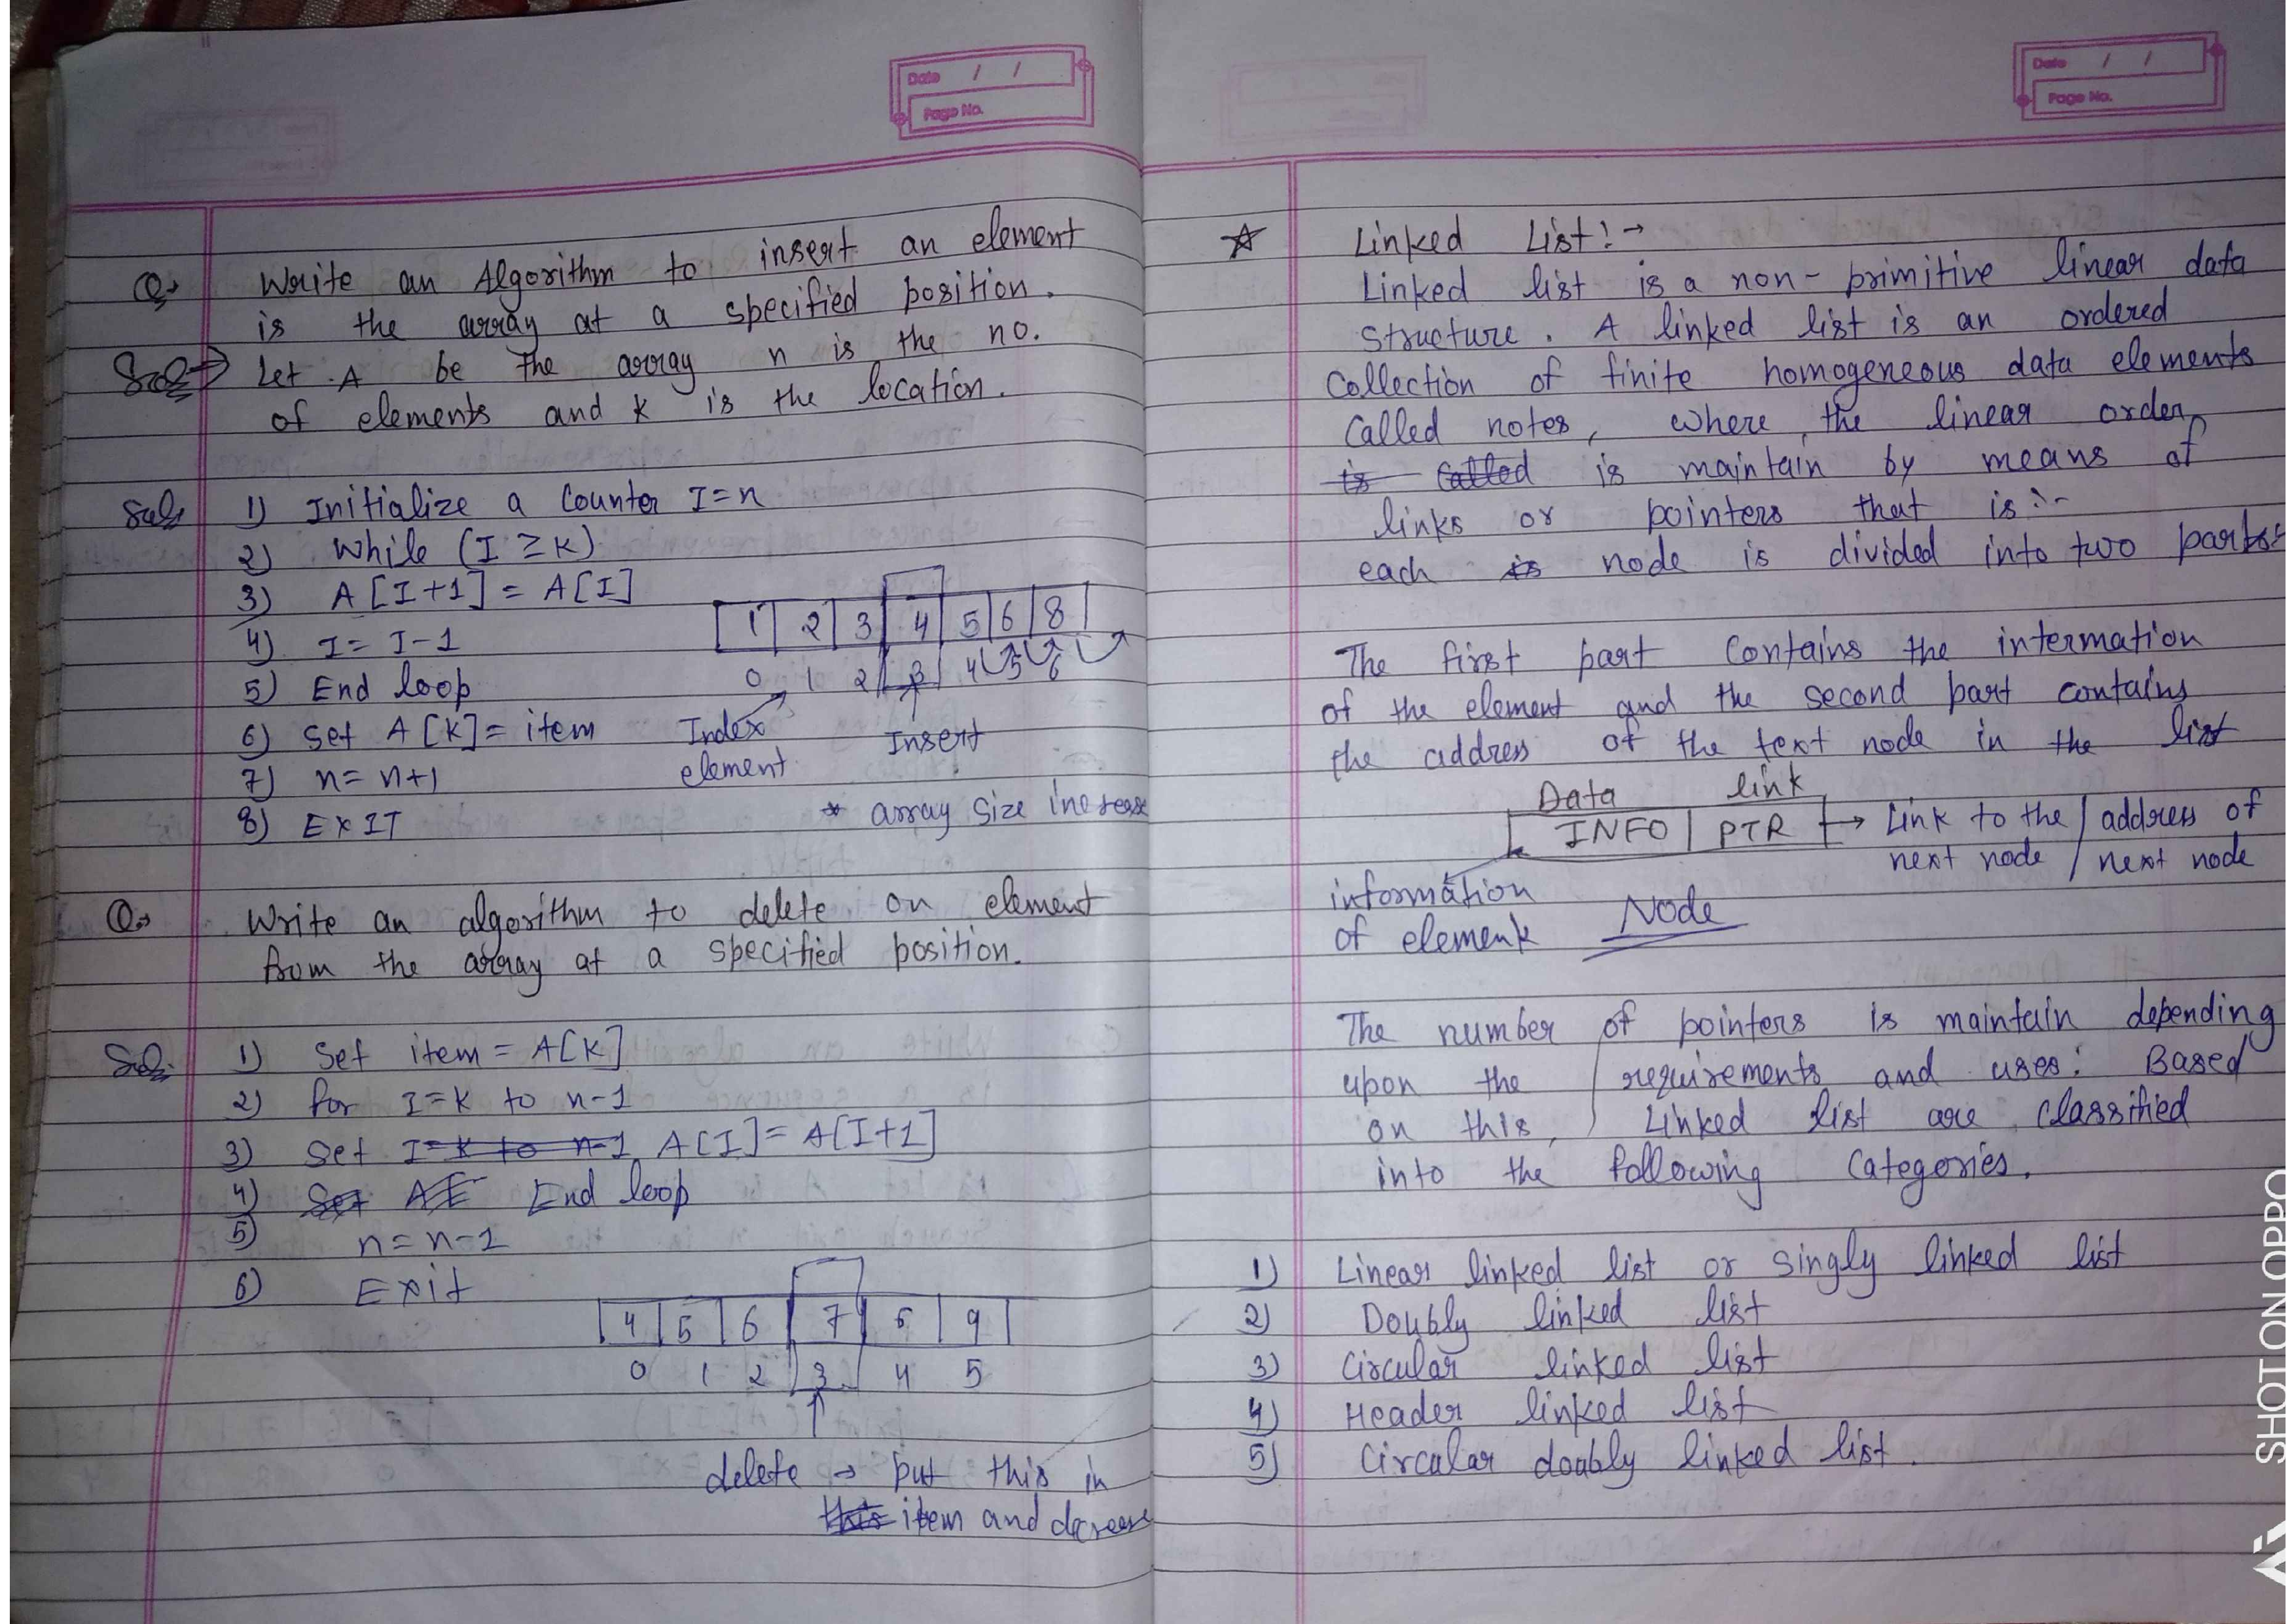 Date / /
Page No.
Q→ Write an Algorithm to insert an element
is the array at a specified position.
Sol→ Let A be the array n is the no.
of elements and K is the location.
Sol: 1) Initialize a Counter I=n
2) While (I ≥ K)
3) A[I+1] = A[I]
4) I = I-1
5) End loop
6) Set A[K] = item
7) n = n+1
8) EXIT
1 2 3 4 5 6 8
0 1 2 3 4 5 6
Index element
Insert
* array size increase
Q→ Write an algorithm to delete on element
from the array at a specified position.
Sol. 1) Set item = A[K]
2) for I=K to n-1
3) Set I=K to n-1 A[I] = A[I+1]
4) Set A[ End loop
5) n = n-1
6) Exit
4 5 6 7 6 9
0 1 2 3 4 5
delete → put this in
this item and decrease
Date / /
Page No.
☆ Linked List:→
Linked list is a non-primitive linear data
structure. A linked list is an ordered
Collection of finite homogeneous data elements
Called notes, where the linear order
is Called is maintain by means of
links or pointers that is:-
each is node is divided into two parts:
The first part Contains the intermation
of the element and the second part contains
the address of the text node in the list
Data link
INFO PTR → Link to the / address of
next node / next node
information
of element Node
The number of pointers is maintain depending
upon the requirements and uses: Based
on this, Linked list are classified
into the following Categories.
1) Linear linked list or singly linked list
2) Doubly linked list
3) Circular linked list
4) Header linked list
5) Circular doubly linked list.
SHOT ON OPPO